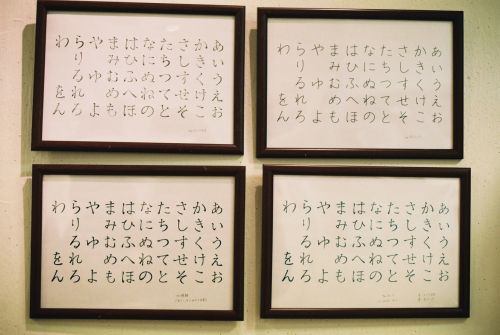 あいうえお
かきくけこ
さしすせそ
たちつてと
なにぬねの
はひふへほ
まみむめも
やゆよ
らりるれろ
わをん
あいうえお
かきくけこ
さしすせそ
たちつてと
なにぬねの
はひふへほ
まみむめも
やゆよ
らりるれろ
わをん
あいうえお
かきくけこ
さしすせそ
たちつてと
なにぬねの
はひふへほ
まみむめも
やゆよ
らりるれろ
わをん
あいうえお
かきくけこ
さしすせそ
たちつてと
なにぬねの
はひふへほ
まみむめも
やゆよ
らりるれろ
わをん